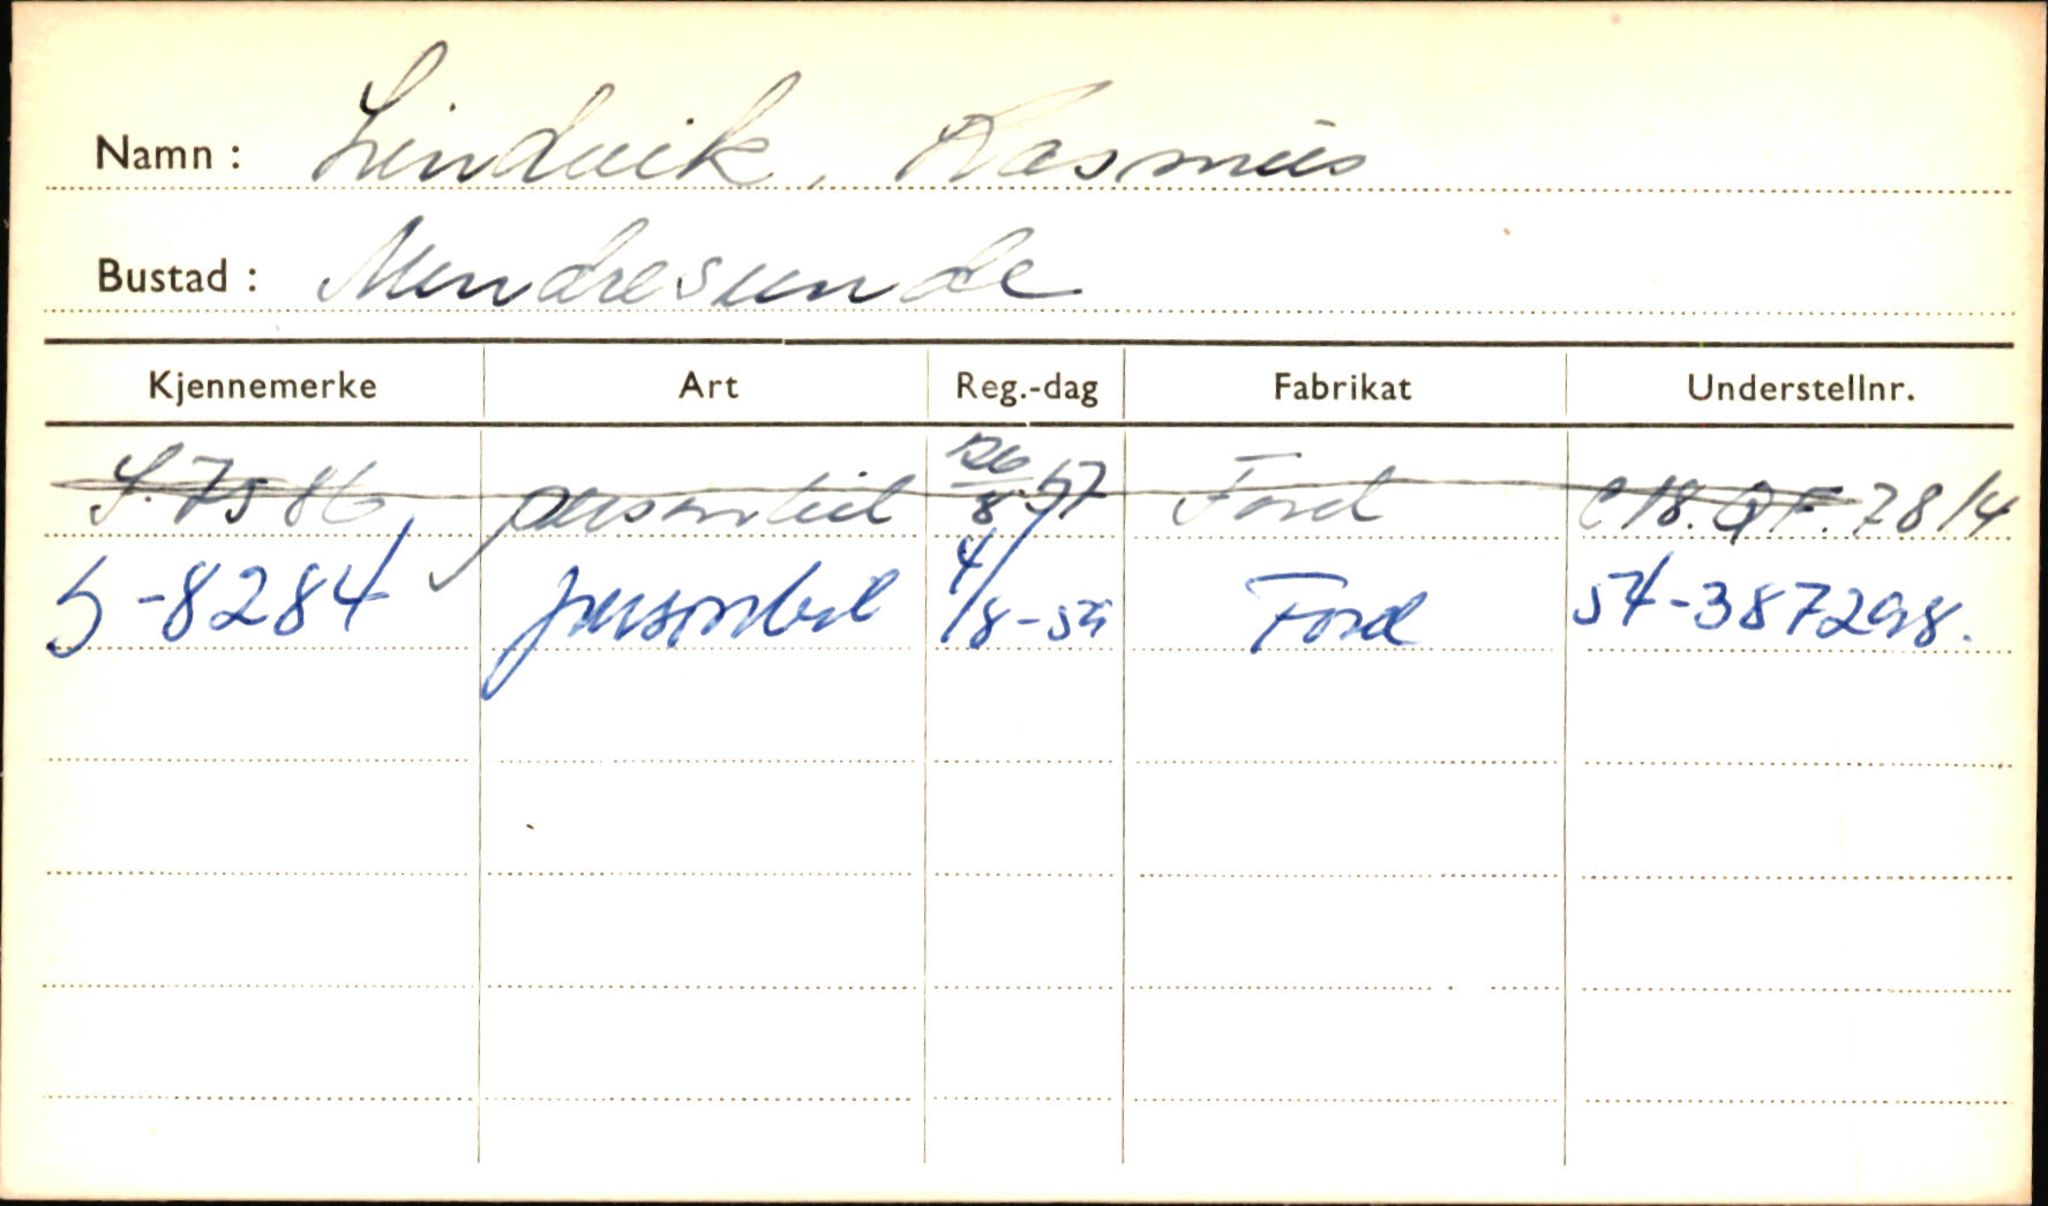 Namn: Lindvik, Rasmus
Bustad: Mindresunde
Kjennemerke Art Reg.-dag Fabrikat Understellnr.
S. 7586 personbil 26/8.57 Ford C18.QF.7814
S-8284 personbil 4/8-59 Ford 54-387298.